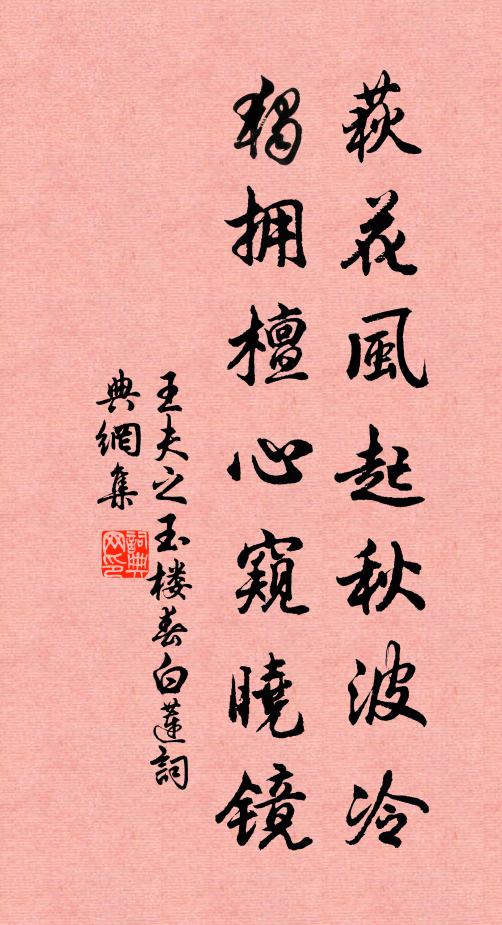 萩花風起秋波冷
獨拥檀心窺曉鏡
王夫之玉楼春白蓮詞
典網集
詞典网印